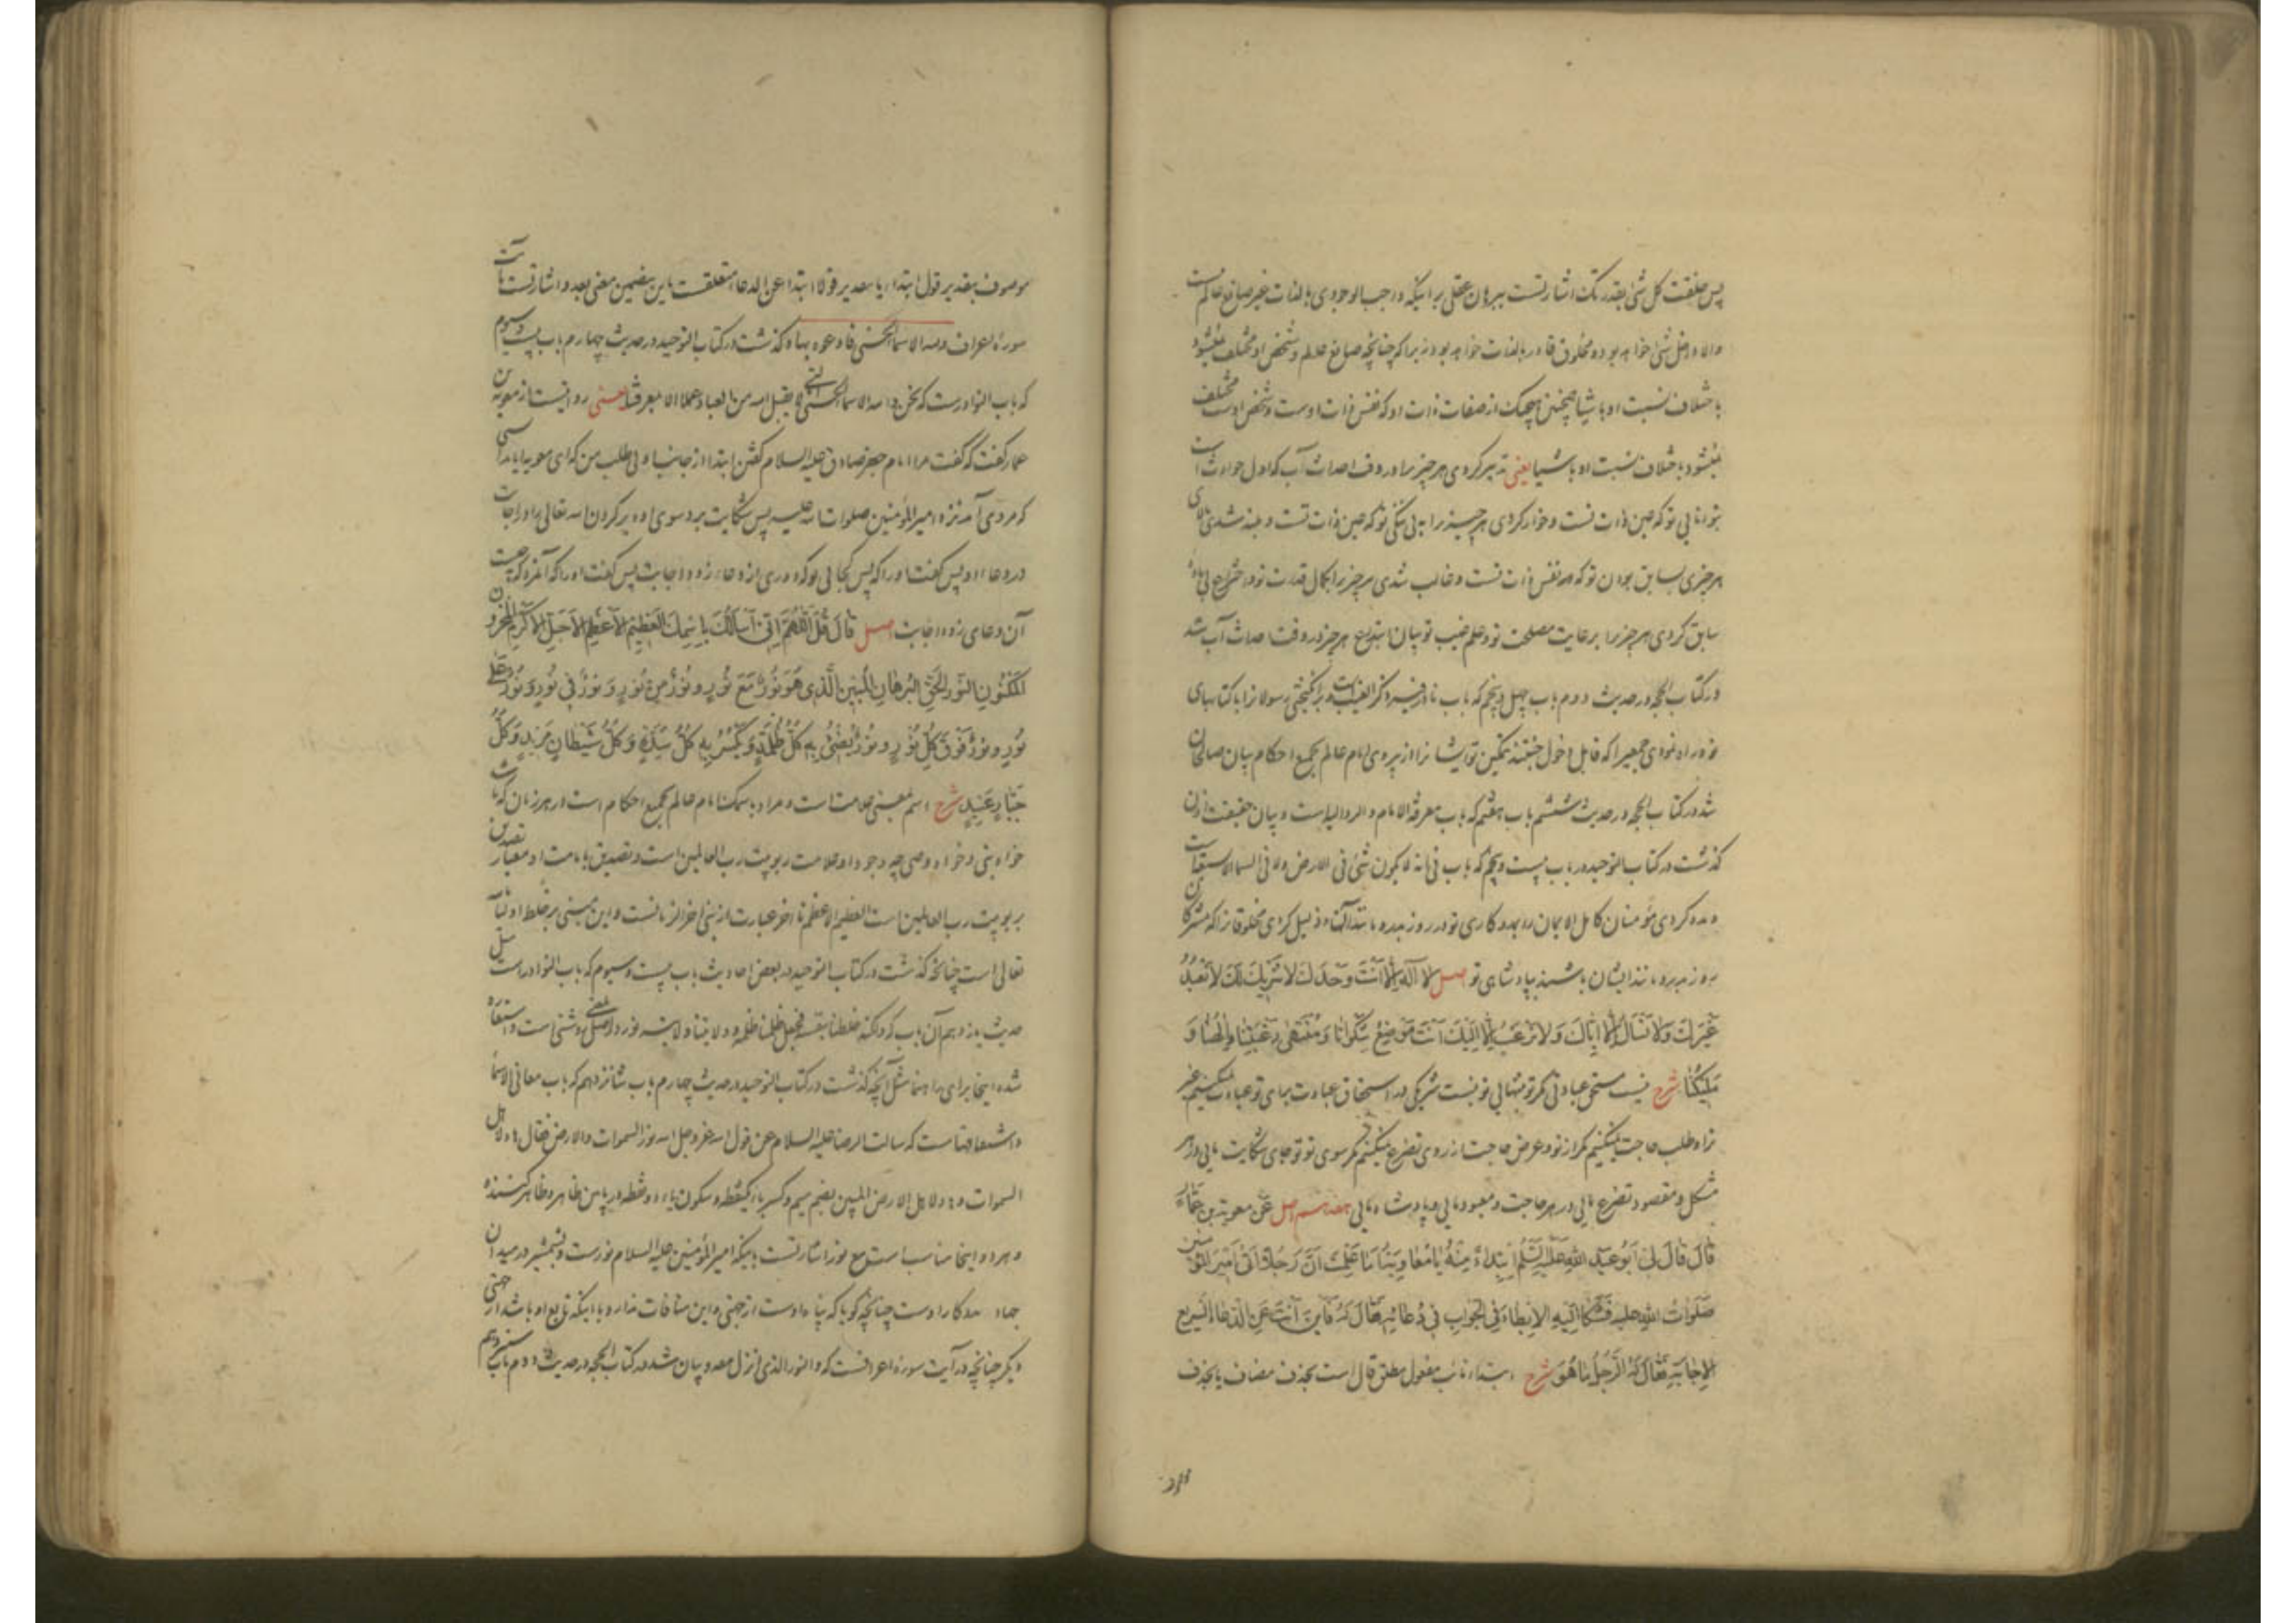 پس خلقت کل شئ بقدرتک اشارتست ببرهان عقلی بر اینکه واجب الوجودی بالذات غیر صانع عالم نیست
والا داخل شئ خواهد بود و مخلوق قادر بالذات خواهد بود زیرا که چنانچه صانع عالم و شخص او مختلف نمیشود
باختلاف نسبت او باشیا همچنین هیچیک از صفات ذات او که نفس ذات اوست و شخص اوست مختلف
نمیشود باختلاف نسبت او باشیا یعنی تدبیر کردی هر چیز را در وقت احداث آب که اول حوادث است
بتوانایی تو که عین ذات تست و خوار کردی هر چیز را به بی‌ننگی تو که عین ذات تست و بلند شدی بالای
هر چیزی بسابق بودن تو که نفس ذات تست و غالب شدی هر چیز را بکمال قدرت تو و اختراع بی ماده
سابق کردی هر چیز را برعایت مصلحت تو و علم غیب تو بیان ابتدع هر چیز در وقت احداث آب شد
در کتاب الحجه در حدیث دوم باب چهل و پنجم که باب نادر فیه ذکر الغیب است و برانگیختی رسولانرا با کتابهای
خود راه نمودی جمعیرا که قابل دخول جنتند بتمکین تو ایشانرا از پیروی امام عالم بجمیع احکام بیان صالحان
شد در کتاب الحجه در حدیث ششم باب هفتم که باب معرفة الامام والرد الیه است و بیان حقیقت اذن
گذشت در کتاب التوحید در باب بیست و پنجم که باب فی انه لا یکون شئ فی الارض ولا فی السماء الا بسبعة است
و مدد کردی مؤمنان کامل الایمان را بمددکاری تو در روز بدر و مانند آنها و ذلیل کردی مخلوقانرا که مشرکان
روز بدر و مانند ایشان باشند بپادشاهی تو اصل لا اله الا انت وحدک لا شریک لک لا نعبد
غیرک ولا نسال الا ایاک ولا نرغب الا الیک انت موضع شکوانا ومنتهی رغبتنا والهنا و
ملیکنا شرح نیست مستحق عبادتی مگر تو بتنهایی تو نیست شریکی در استحقاق عبادت برای تو عبادت نمیکنیم غیر
ترا و طلب حاجت نمیکنیم مگر از تو و عرض حاجت از روی تضرع نمیکنیم مگر سوی تو تو جای شکایت مایی در هر
مشکل و مقصود تضرع مایی در هر حاجت و معبود مایی و پادشاه مایی هفدهم اصل عن معویة بن عمار
قال قال لی ابو عبد الله علیه السلم ابتداء منه یا معاویة اما علمت ان رجلا اتی امیر المؤمنین
صلوات الله علیه فشکا الیه الابطاء فی الجواب فی دعائه فقال له فاین انت عن الدعاء السریع
الاجابة فقال له الرجل ما هو شرح ابتداء نائب مفعول مطلق قال است بحذف مضاف یا بحذف
موصوف بتقدیر قول ابتداء یا بتقدیر قولا ابتداء عن الدعاء متعلقست باین بتضمین معنی بعد و اشارتست بآیت
سورهٔ اعراف ولله الاسماء الحسنی فادعوه بها و گذشت در کتاب التوحید در حدیث چهارم باب بیست و سیوم
که باب النوادرست که نحن والله الاسماء الحسنی التی لا یقبل الله من العباد عملا الا بمعرفتنا یعنی روایتست از معویة بن
عمار گفت که گفت مرا امام جعفر صادق علیه السلام گفتن ابتدا از جانب او بی طلب من که ای معویه آیا ندانستی
که مردی آمد نزد امیر المؤمنین صلوات الله علیه پس شکایت برد سوی او دیر کردن الله تعالی را در اجابت
در دعاء او پس گفت او را که پس کجایی تو که دوری از دعاء زود اجابت پس گفت او را که آنمرد که چیست
آن دعای زود اجابت اصل قال قل اللهم انی اسالک باسمک العظیم الاعظم الاجل الاکرم المخزون
المکنون النور الحق البرهان المبین الذی هو نور مع نور ونور من نور ونور فی نور ونور علی
نور ونور فوق کل نور ونور یضئ به کل ظلمة ویکسر به کل شدة وکل شیطان مرید وکل
جبار عنید شرح اسم بمعنی علامت است و مراد باسمک امام عالم بجمیع احکام است در هر زمان که باشد
خواه نبی و خواه وصی چه وجود او علامت ربوبیت رب العالمین است و تصدیق بامامت او معیار تصدیق
بربوبیت رب العالمین است العظیم الاعظم تا آخر عبارت از نبی آخر الزمانست و این مبنی بر خلط اولیا
تعالی است چنانچه گذشت در کتاب التوحید در بعض احادیث باب بیست و سیوم که باب النوادر است مثل
حدیث یازدهم آن باب که ولکنه خلطنا بنفسه فجعل ظلمنا ظلمه و ولایتنا ولایته نور در اصل بمعنی روشنی است و استعاره
شده اینجا برای راهنما مثل آنچه گذشت در کتاب التوحید در حدیث چهارم باب شانزدهم که باب معانی الاسماء
واشتقاقها ست که سالت الرضا علیه السلام عن قول الله عز وجل الله نور السموات والارض فقال هاد لاهل
السموات وهاد لاهل الارض المبین بضم میم و کسر باء یکنقطه و سکون یاء دو نقطه در پایین ظاهر و ظاهر کننده
و هر دو اینجا مناسب است مع نور اشارتست باینکه امیر المؤمنین علیه السلام نورست و بشمشیر در میدان
جهاد مددکار اوست چنانچه گویا که پناه اوست از جهتی و این منافات ندارد با اینکه تابع او باشد از جهتی
دیگر چنانچه در آیت سورهٔ اعرافست که والنور الذی انزل معه و بیان شد در کتاب الحجه در حدیث دوم باب سیزدهم